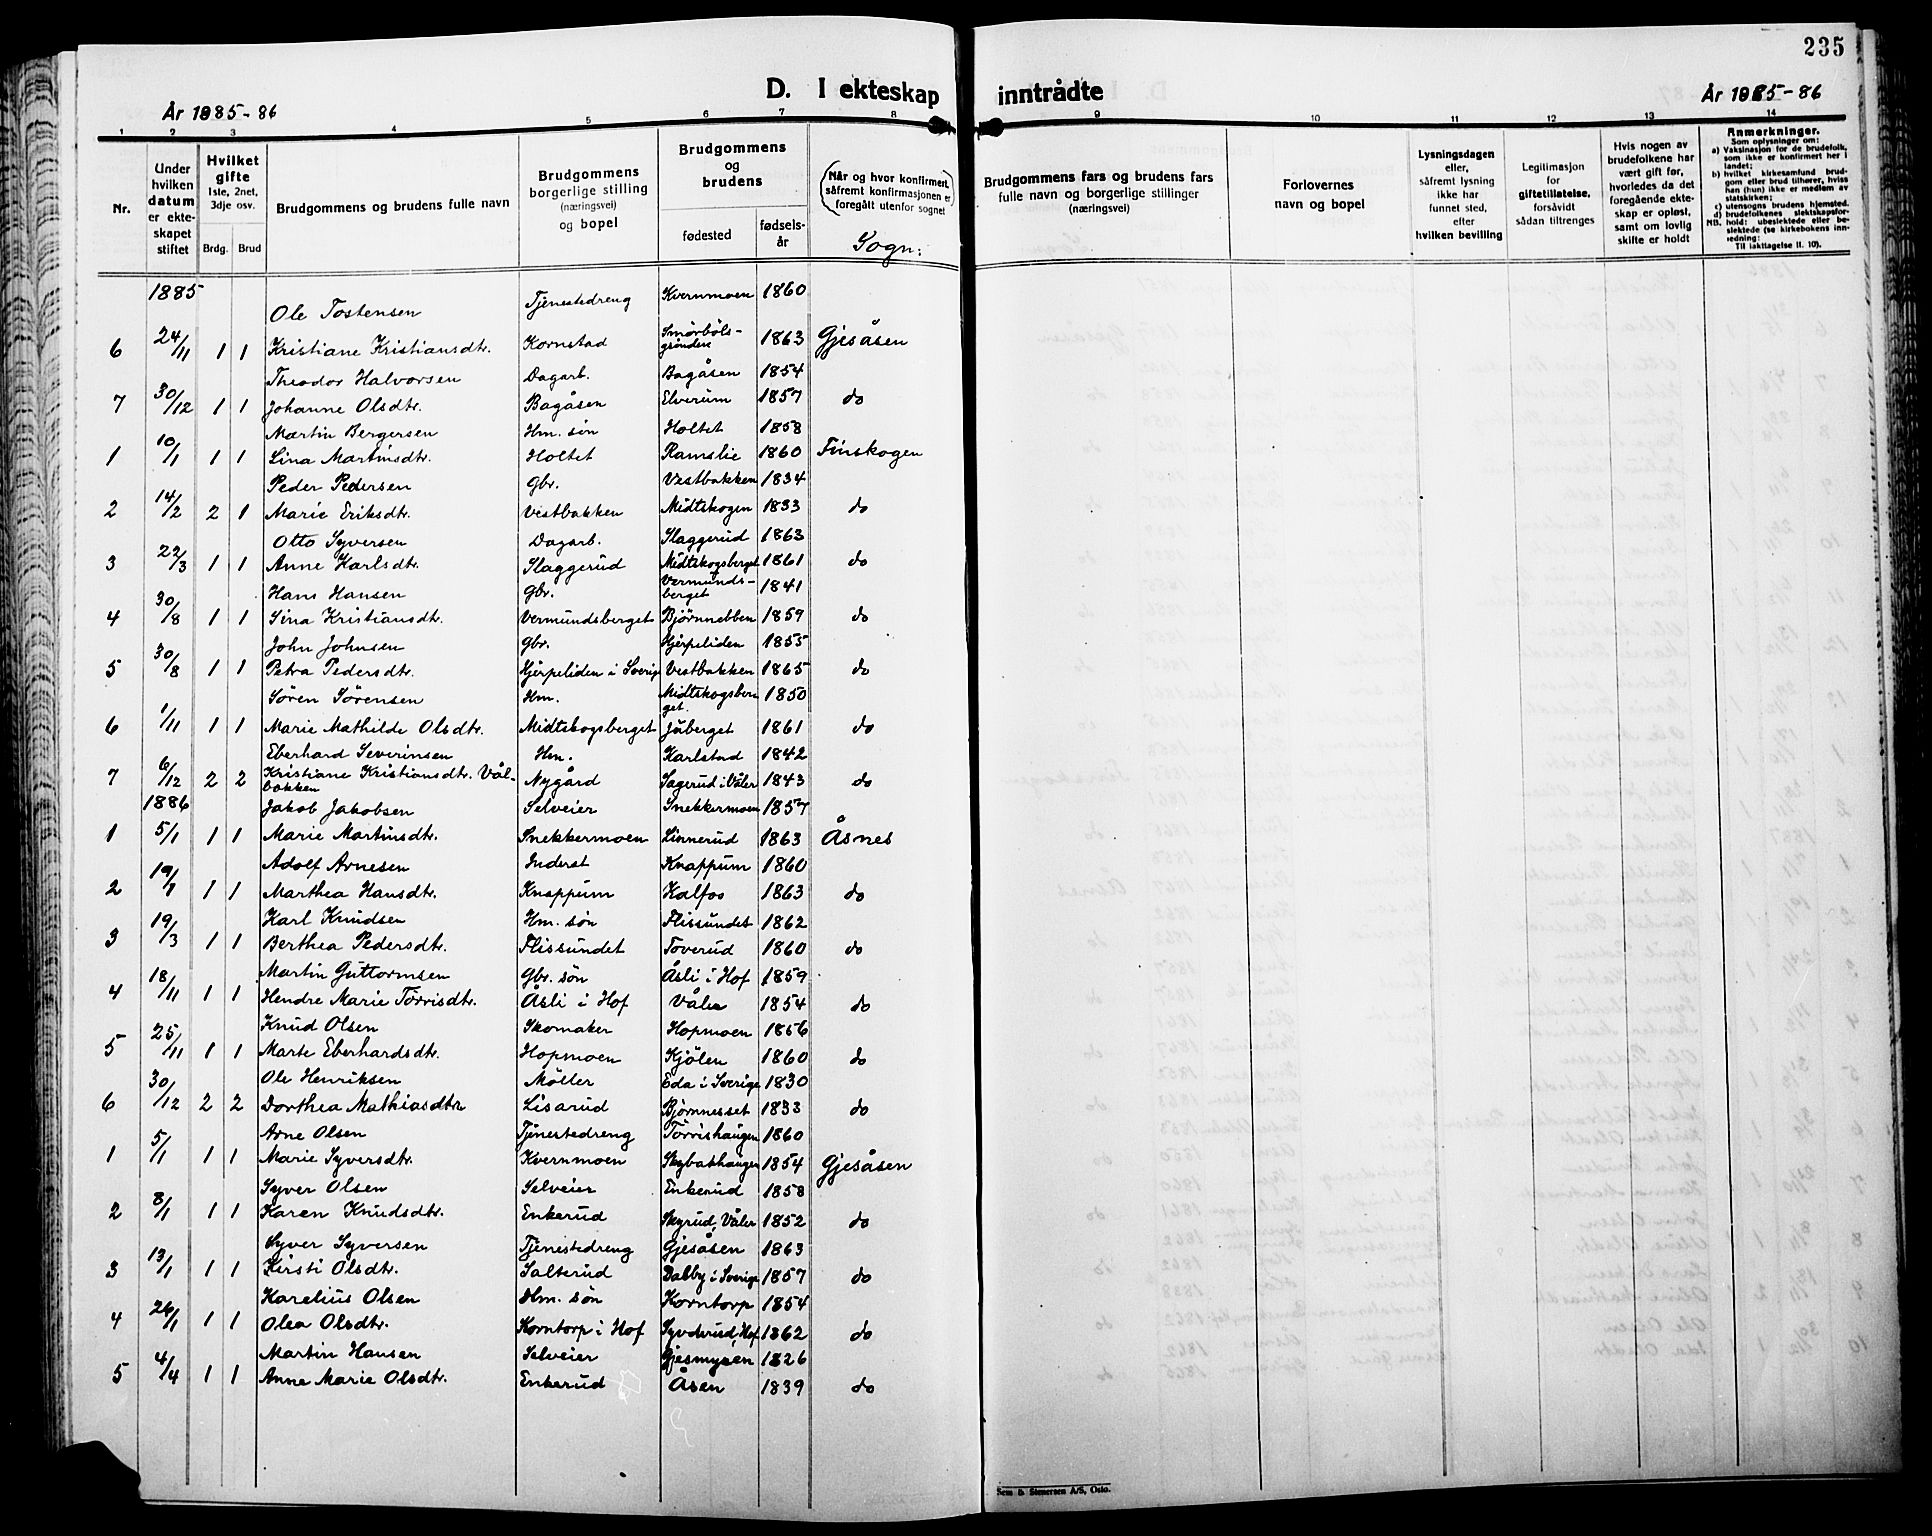 235
D. I ekteskap inntrådte
År 1885-86
År 1885-86
1 2 3 4 5 6 7 8 9 10 11 12 13 14
Nr.
Under hvilken datum er ekteskapet stiftet
Hvilket gifte
1ste, 2net, 3dje osv.
Brdg. Brud
Brudgommens og brudens fulle navn
Brudgommens borgerlige stilling (næringsvei) og bopel
Brudgommens og brudens
fødested
fødselsår
(Når og hvor konfirmert, såfremt konfirmasjonen er foregått utenfor sognet)
Sogn:
Brudgommens fars og brudens fars fulle navn og borgerlige stillinger (næringsvei)
Forlovernes navn og bopel
Lysningsdagen eller, såfremt lysning ikke har funnet sted, efter hvilken bevilling
Legitimasjon for giftetillatelse, forsåvidt sådan tiltrenges
Hvis nogen av brudefolkene har vært gift før, hvorledes da det foregående ekteskap er opløst, samt om lovlig skifte er holdt
Anmerkninger.
Som oplysninger om:
a) Vaksinasjon for de brudefolk, som ikke er konfirmert her i landet;
b) hvilket kirkesamfund brudgom eller brud tilhører, hvis han (hun) ikke er medlem av statskirken;
c) utensogns brudens hjemsted.
d) brudefolkenes slektskapsforhold: ubeslektede eller beslektede (se kirkebokens innredning:
NB.
Til iakttagelse II. 10).
1885
Ole Tostensen Tjenestedreng Kvernmoen 1860
6 24/11 1 1 Kristiane Kristiansdtr. Kornstad Smörböls-grönden 1863 Gjesåsen
Theodor Halvorsen Dagarb. Bagåsen 1854
7 30/12 1 1 Johanne Olsdtr. Bagåsen Elverum 1857 do
Martin Bergersen Hm. sön Holtet 1858
1 10/1 1 1 Lina Martinsdtr. Holtet Ramslie 1860 Finskogen
Peder Pedersen Gbr. Vestbakken 1834
2 14/2 2 1 Marie Eriksdtr. Vestbakken Midtskogen 1833 do
Otto Syversen Dagarb. Slaggerud 1863
3 22/3 1 1 Anne Karlsdtr. Slaggerud Midtskogsberget 1861 do
Hans Hansen Gbr. Vermunds-berget 1841
4 30/8 1 1 Sina Kristiansdtr. Vermundsberget Björnnebben 1859 do
John Johnsen Gbr. Hjerpeliden 1855
5 30/8 1 1 Petra Pedersdtr. Hjerpeliden i Sverig Vestbakken 1865 do
Sören Sörensen Hm. Midtskogsberget. 1850
6 1/11 1 1 Marie Mathilde Olsdtr. Midtskogsberget Juberget 1861 do
Eberhard Severinsen Hm. Karlstad 1842
7 6/12 2 2 Kristiane Kristiansdtr. Vålbakken Nygård Sagerud i Våler 1843 do
1886 Jakob Jakobsen Selveier Snekkermoen 1857
1 5/1 1 1 Marie Martinsdtr. Snekkermoen Linnerud 1863 Åsnes
Adolf Arnesen Inderst Knappum 1860
2 19/1 1 1 Marthea Hansdtr. Knappum Kalfos 1863 do
Karl Knudsen Hm. sön Flissundet 1862
3 19/3 1 1 Berthea Pedersdtr. Flissundet Toverud 1860 do
Martin Guttormsen Gbr. sön Åsli i Hof 1859
4 18/11 1 1 Hendre Marie Törrisdtr. Åsli i Hof Våler 1854 do
Knud Olsen Skomaker Hopmoen 1856
5 25/11 1 1 Marte Eberhardsdtr. Hopmoen Kjölen 1860 do
Ole Henriksen Möller Eda i Sverige 1830
6 30/12 2 2 Dorthea Mathiasdtr Lisarud Björnnesset 1833 do
Arne Olsen Tjenestedreng Törrishaugen 1860
1 5/1 1 1 Marie Syversdtr. Kvernmoen Skybakhaugen 1854 Gjesåsen
Syver Olsen Selveier Enkerud 1858
2 8/1 1 1 Karen Knudsdtr. Enkerud Skyrud, Våler 1852 do
Syver Syversen Tjenestedreng Gjesåsen 1863
3 13/1 1 1 Kirsti Olsdtr. Salterud Dalby i Sverige 1857 do
Karelius Olsen Hm. sön Korntorp 1854
4 26/1 1 1 Olea Olsdtr. Korntorp i Hof Syvderud, Hof 1862 do
Martin Hansen Selveier Gjesmyren 1826
5 4/4 1 1 Anne Marie Olsdtr. Enkerud Åsen 1839 do
Sem & Stenersen A/S, Oslo.